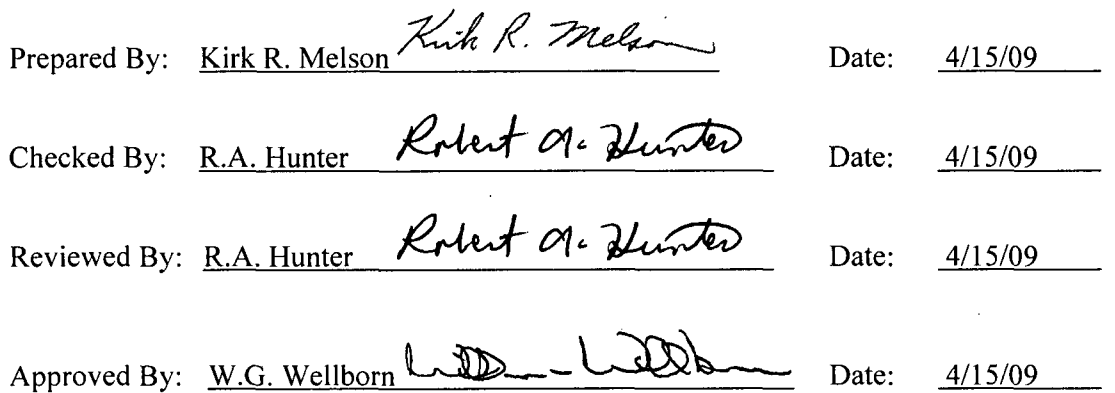 Prepared By: Kirk R. Melson Kirk R. Melson Date: 4/15/09
Checked By: R.A. Hunter Robert A. Hunter Date: 4/15/09
Reviewed By: R.A. Hunter Robert A. Hunter Date: 4/15/09
Approved By: W.G. Wellborn Date: 4/15/09